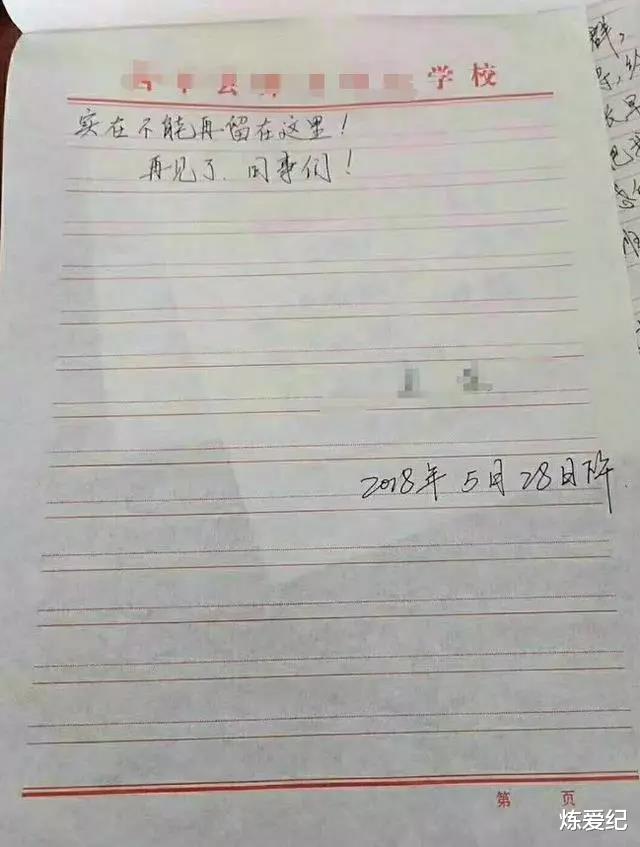 学校
实在不能再留在这里！
再见了、同事们！
2018年5月28日下午
第 页
炼爱纪